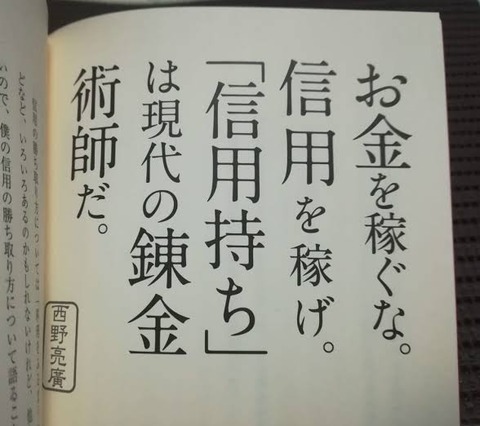 お金を稼ぐな。
信用を稼げ。
「信用持ち」
は現代の錬金
術師だ。
西野亮廣
どなど、いろいろあるのかもしれないけれど、
いので、僕の信用の勝ち取り方について語るこ